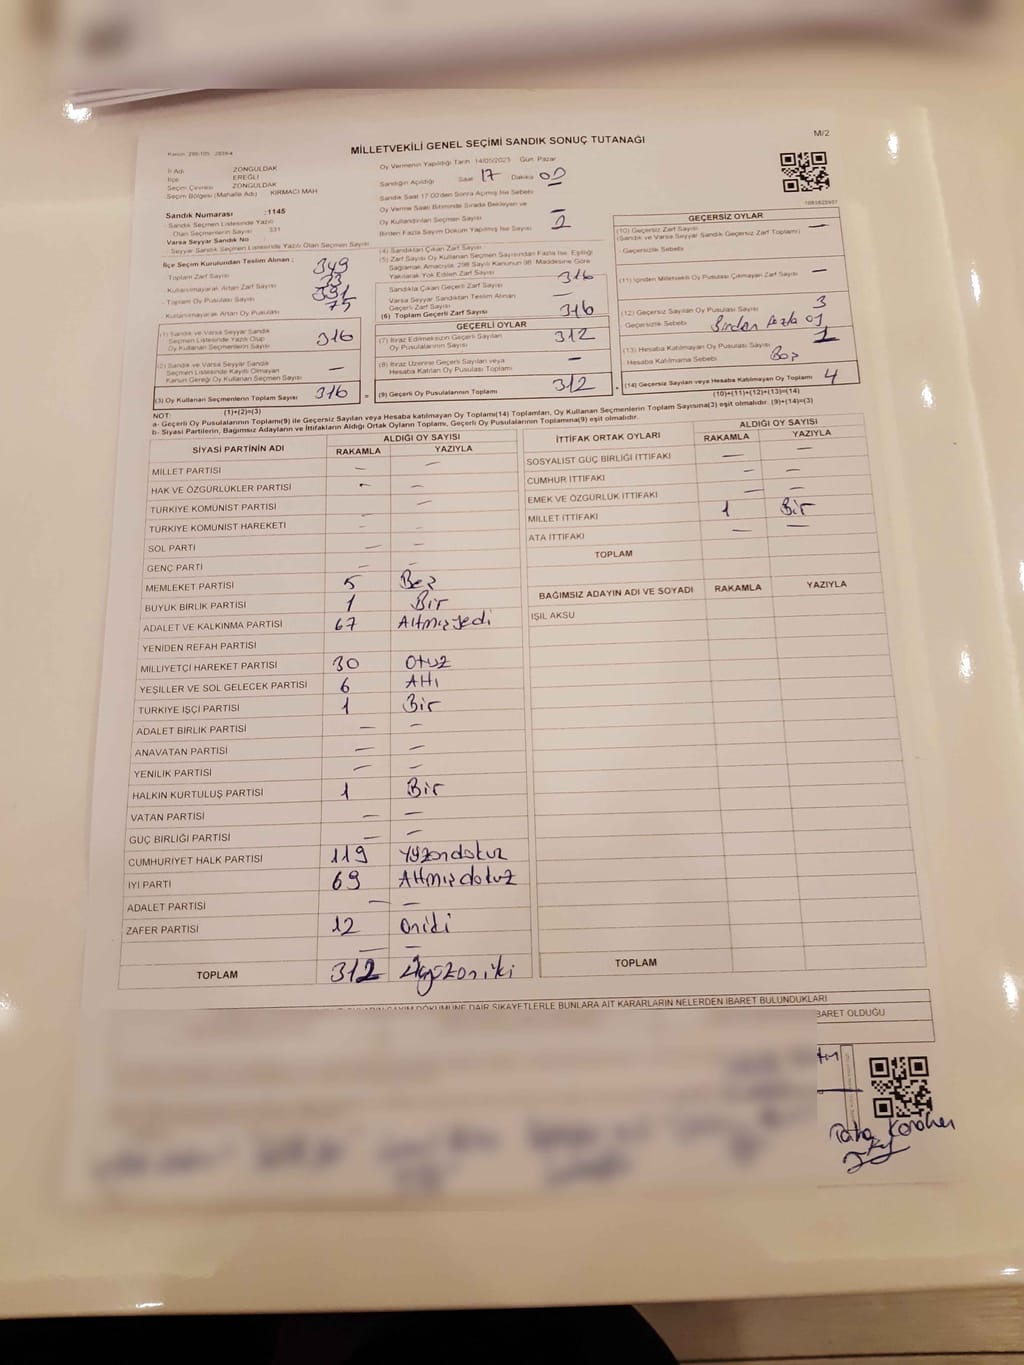 Kanun: 298-105 2839/4
MİLLETVEKİLİ GENEL SEÇİMİ SANDIK SONUÇ TUTANAĞI
M/2
İl Adı ZONGULDAK
İlçe EREĞLİ
Seçim Çevresi ZONGULDAK
Seçim Bölgesi (Mahalle Adı) KIRMACI MAH
Sandık Numarası :1145
- Sandık Seçmen Listesinde Yazılı
Olan Seçmenlerin Sayısı 331
Varsa Seyyar Sandık No
- Seyyar Sandık Seçmen Listesinde Yazılı Olan Seçmen Sayısı
Oy Vermenin Yapıldığı Tarih 14/05/2023 Gün Pazar
Sandığın Açıldığı Saat 17 Dakika 00
Sandık Saat 17:00'den Sonra Açılmış İse Sebebi
Oy Verme Saati Bitiminde Sırada Bekleyen ve
Oy Kullandırılan Seçmen Sayısı —
Birden Fazla Sayım Döküm Yapılmış İse Sayısı
İlçe Seçim Kurulundan Teslim Alınan ;
- Toplam Zarf Sayısı 349
- Kullanılmayarak Artan Zarf Sayısı 33
- Toplam Oy Pusulası Sayısı 391
- Kullanılmayarak Artan Oy Pusulası 75
(1) Sandık ve Varsa Seyyar Sandık
Seçmen Listesinde Yazılı Olup
Oy Kullanan Seçmenlerin Sayısı 316
(2) Sandık ve Varsa Seyyar Sandık
Seçmen Listesinde Kayıtlı Olmayan
Kanun Gereği Oy Kullanan Seçmen Sayısı —
(3) Oy Kullanan Seçmenlerin Toplam Sayısı 316
(1)+(2)=(3)
(4) Sandıktan Çıkan Zarf Sayısı
(5) Zarf Sayısı Oy Kullanan Seçmen Sayısından Fazla İse, Eşitliği
Sağlamak Amacıyla, 298 Sayılı Kanunun 98. Maddesine Göre
Yakılarak Yok Edilen Zarf Sayısı
Sandıkta Çıkan Geçerli Zarf Sayısı 316
Varsa Seyyar Sandıktan Teslim Alınan
Geçerli Zarf Sayısı —
(6) Toplam Geçerli Zarf Sayısı 316
GEÇERLİ OYLAR
(7) İtiraz Edilmeksizin Geçerli Sayılan
Oy Pusulalarının Sayısı 312
(8) İtiraz Üzerine Geçerli Sayılan veya
Hesaba Katılan Oy Pusulası Toplamı —
(9) Geçerli Oy Pusulalarının Toplamı 312
GEÇERSİZ OYLAR
(10) Geçersiz Zarf Sayısı —
(Sandık ve Varsa Seyyar Sandık Geçersiz Zarf Toplamı)
- Geçersizlik Sebebi
(11) İçinden Milletvekili Oy Pusulası Çıkmayan Zarf Sayısı —
(12) Geçersiz Sayılan Oy Pusulası Sayısı 3
Geçersizlik Sebebi Birden fazla oy
(13) Hesaba Katılmayan Oy Pusulası Sayısı 1
Hesaba Katılmama Sebebi Boş
(14) Geçersiz Sayılan veya Hesaba Katılmayan Oy Toplamı 4
(10)+(11)+(12)+(13)=(14)
NOT:
a- Geçerli Oy Pusulalarının Toplamı(9) ile Geçersiz Sayılan veya Hesaba katılmayan Oy Toplamı(14) Toplamları, Oy Kullanan Seçmenlerin Toplam Sayısına(3) eşit olmalıdır. (9)+(14)=(3)
b- Siyasi Partilerin, Bağımsız Adayların ve İttifakların Aldığı Ortak Oyların Toplamı, Geçerli Oy Pusulalarının Toplamına(9) eşit olmalıdır.
SİYASİ PARTİNİN ADI ALDIĞI OY SAYISI
RAKAMLA YAZIYLA
MİLLET PARTİSİ — —
HAK VE ÖZGÜRLÜKLER PARTİSİ - —
TÜRKİYE KOMÜNİST PARTİSİ — —
TÜRKİYE KOMÜNİST HAREKETİ - -
SOL PARTİ — —
GENÇ PARTİ — —
MEMLEKET PARTİSİ 5 Beş
BÜYÜK BİRLİK PARTİSİ 1 Bir
ADALET VE KALKINMA PARTİSİ 67 Altmışyedi
YENİDEN REFAH PARTİSİ
MİLLİYETÇİ HAREKET PARTİSİ 30 Otuz
YEŞİLLER VE SOL GELECEK PARTİSİ 6 Altı
TÜRKİYE İŞÇİ PARTİSİ 1 Bir
ADALET BİRLİK PARTİSİ — —
ANAVATAN PARTİSİ — —
YENİLİK PARTİSİ — —
HALKIN KURTULUŞ PARTİSİ 1 Bir
VATAN PARTİSİ — —
GÜÇ BİRLİĞİ PARTİSİ — —
CUMHURİYET HALK PARTİSİ 119 Yüzondokuz
İYİ PARTİ 69 Altmışdokuz
ADALET PARTİSİ — —
ZAFER PARTİSİ 12 Oniki
— —
TOPLAM 312 Üçyüzoniki
İTTİFAK ORTAK OYLARI ALDIĞI OY SAYISI
RAKAMLA YAZIYLA
SOSYALİST GÜÇ BİRLİĞİ İTTİFAKI — —
CUMHUR İTTİFAKI — —
EMEK VE ÖZGÜRLÜK İTTİFAKI — —
MİLLET İTTİFAKI 1 Bir
ATA İTTİFAKI — —
TOPLAM
BAĞIMSIZ ADAYIN ADI VE SOYADI RAKAMLA YAZIYLA
IŞIL AKSU
TOPLAM
SAYIM DÖKÜMÜNE DAİR ŞİKAYETLERLE BUNLARA AİT KARARLARIN NELERDEN İBARET BULUNDUKLARI
İBARET OLDUĞU